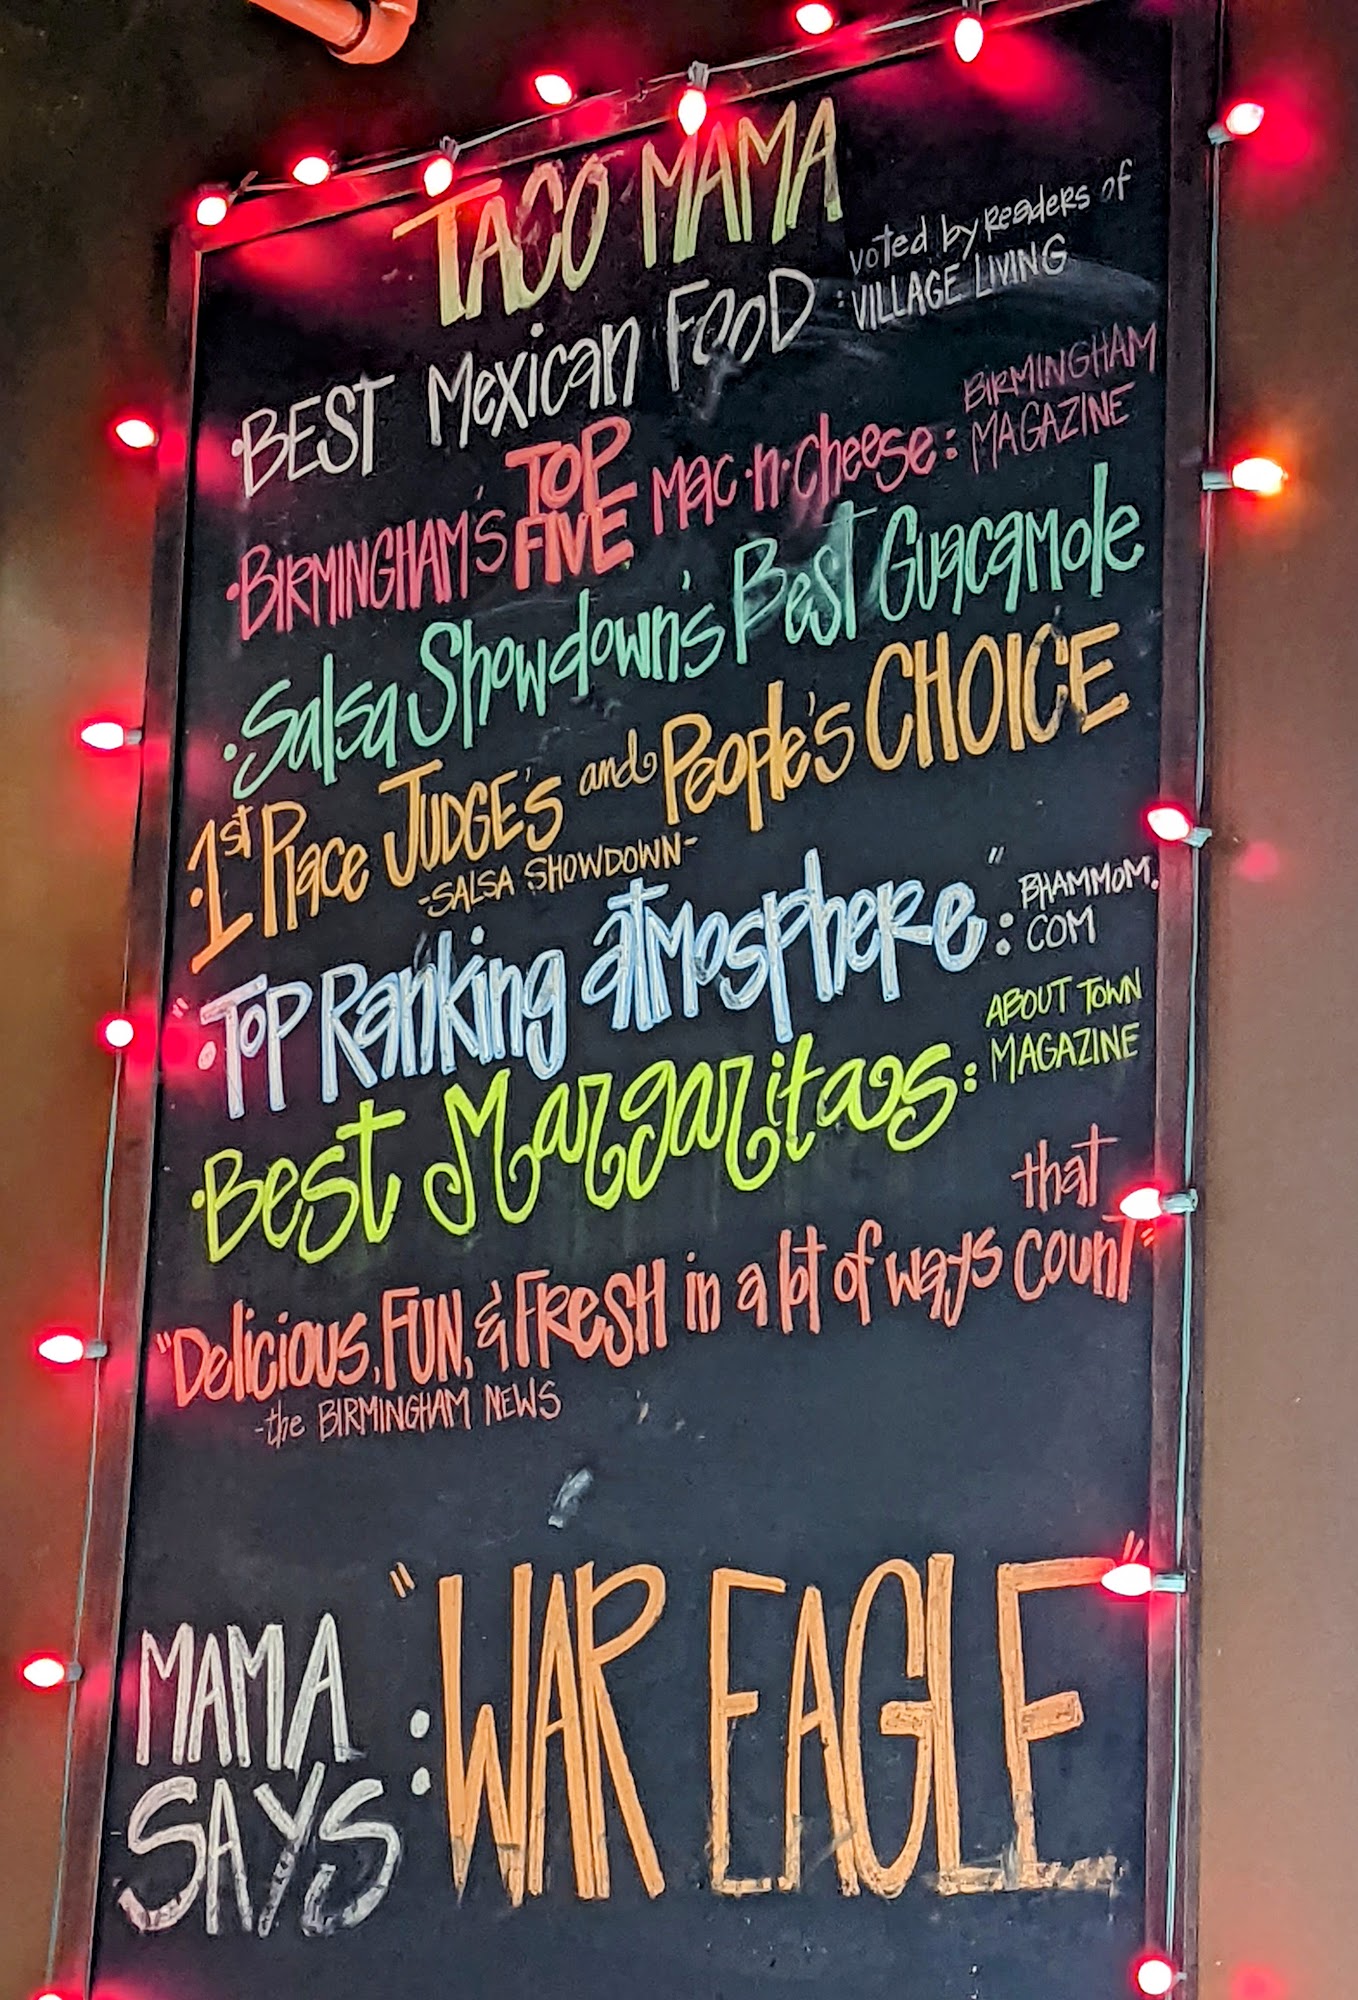 TACO MAMA
·BEST Mexican FOOD : voted by Readers of
VILLAGE LIVING
·BIRMINGHAM'S TOP FIVE Mac·n·cheese: BIRMINGHAM
MAGAZINE
·Salsa Showdown's Best Guacamole
·1st Place JUDGE'S and People's CHOICE
-SALSA SHOWDOWN-
·"TOP Ranking atmosphere": BHAMMOM.
COM
·Best Margaritas: ABOUT TOWN
MAGAZINE
"Delicious, FUN, & FRESH in a lot of ways that count"
-the BIRMINGHAM NEWS
MAMA
SAYS: "WAR EAGLE"